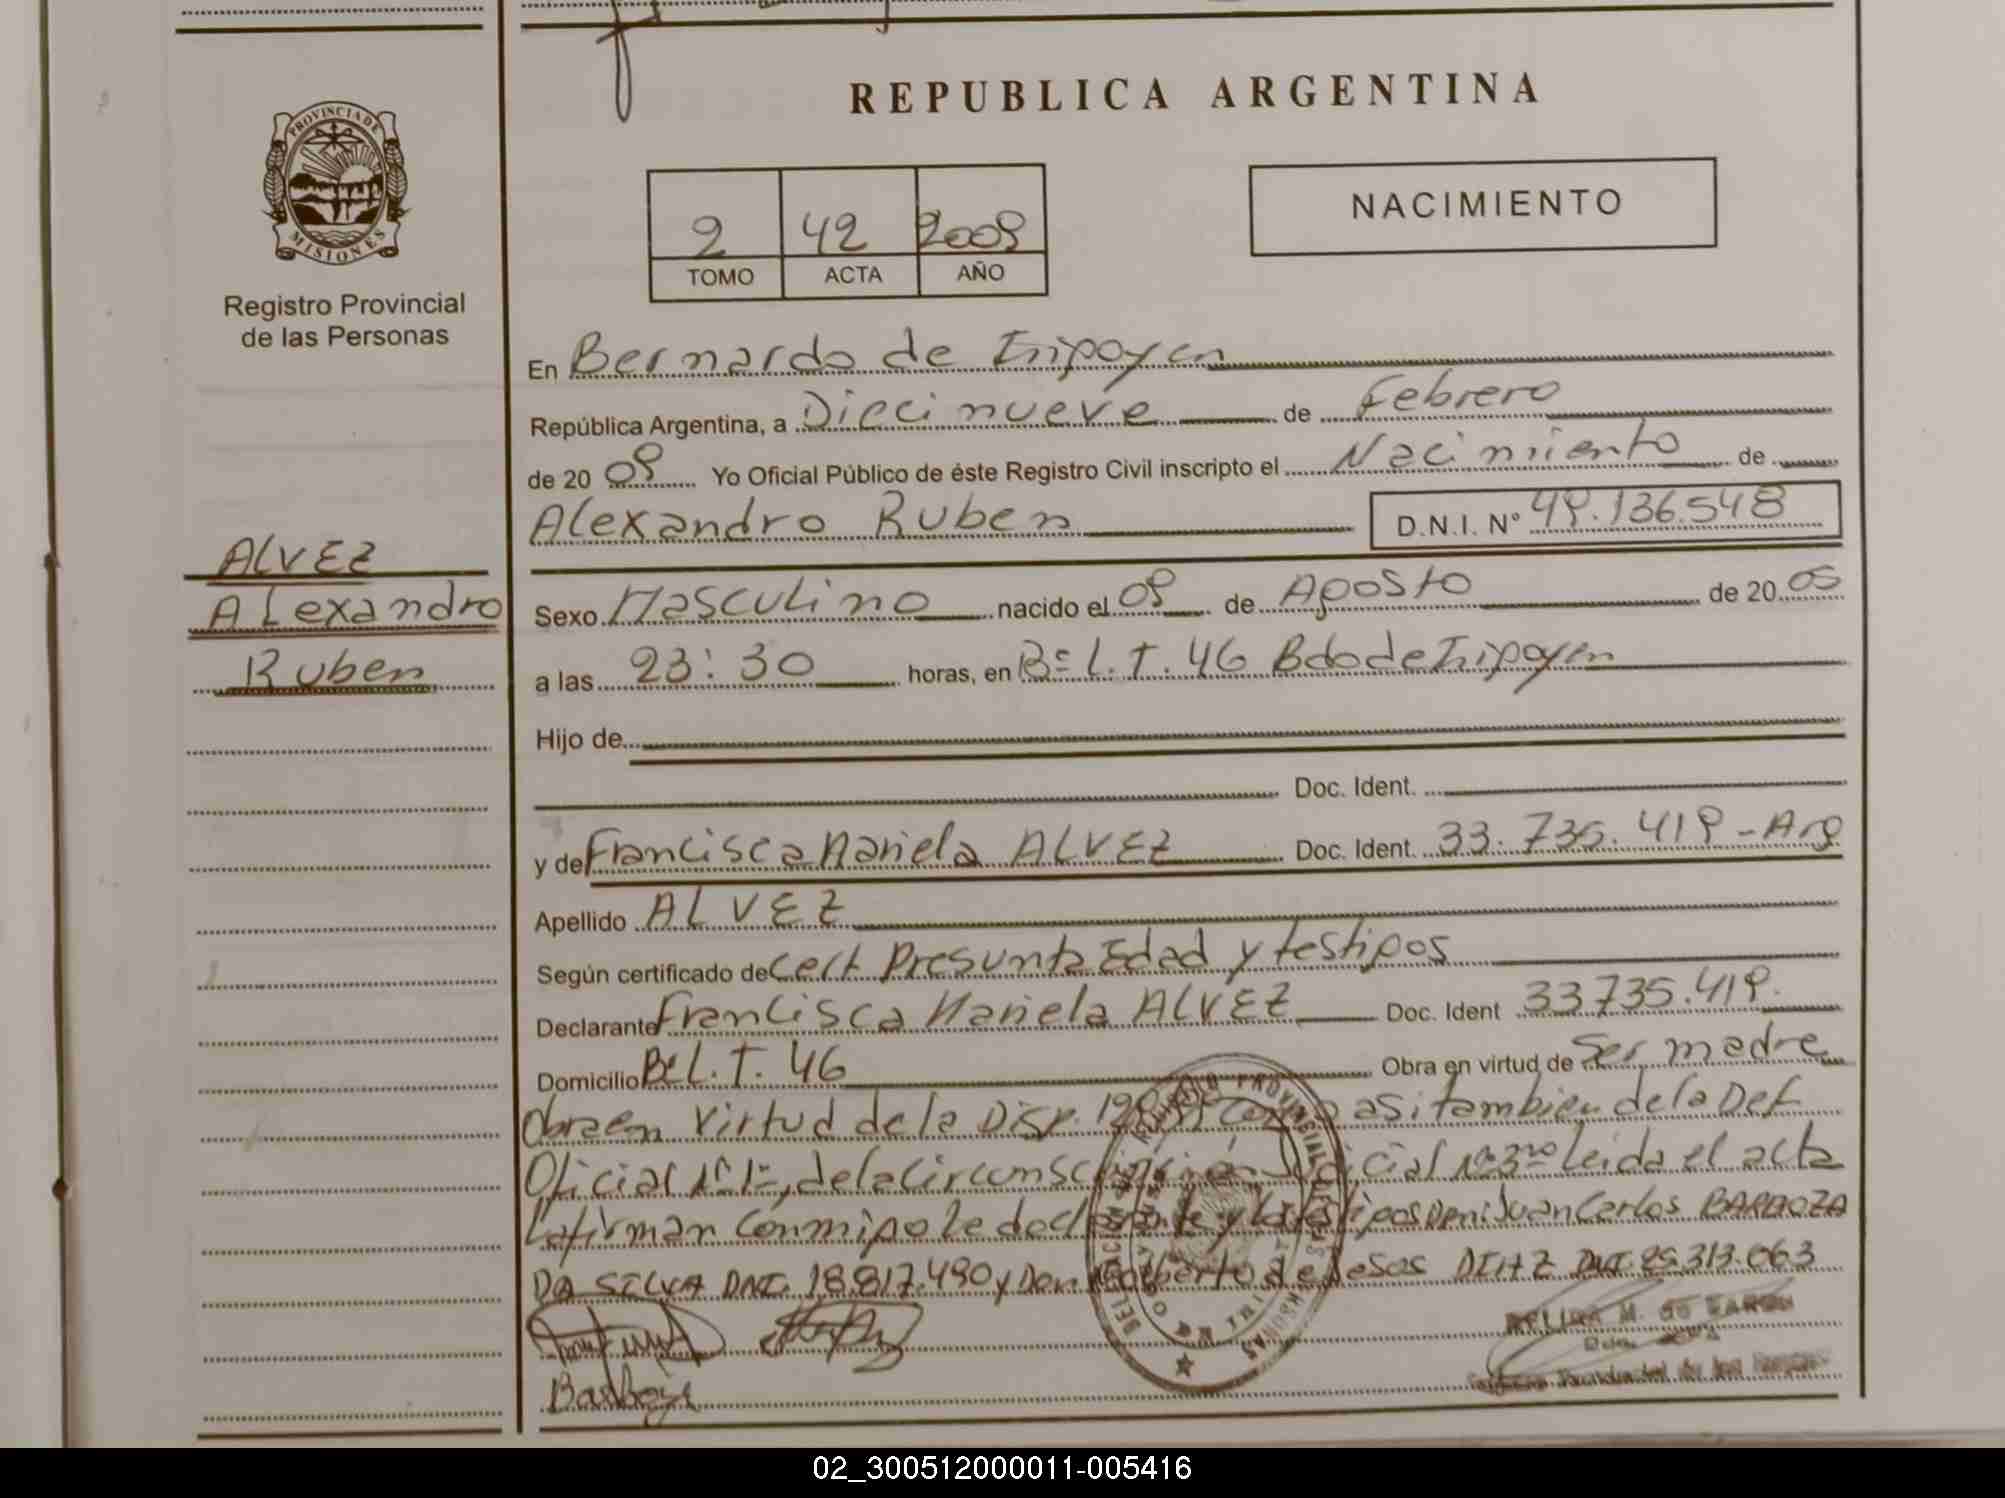 REPUBLICA ARGENTINA
PROVINCIA DE MISIONES
Registro Provincial
de las Personas
2 42 2009
TOMO ACTA AÑO
NACIMIENTO
En Bernardo de Irigoyen
República Argentina, a Diecinueve de Febrero
de 20 09 Yo Oficial Público de éste Registro Civil inscripto el Nacimiento de
Alexandro Ruben D.N.I. Nº 49.136.548
ALVEZ
Alexandro
Ruben
Sexo Masculino nacido el 09 de Agosto de 20 05
a las 23:30 horas, en Bº L.T. 46 Bdo de Irigoyen
Hijo de
Doc. Ident.
y de Francisca Mariela ALVEZ Doc. Ident. 33.735.419 - Arg
Apellido ALVEZ
Según certificado de Cert Presunta Edad y testigos
Declarante Francisca Mariela ALVEZ Doc. Ident 33735.419.
Domicilio Bº L.T. 46 Obra en virtud de Ser madre
Obra en virtud de la Disp. asi tambien de la Def
Oficial Nº 1, de la Circunscripción Judicial Nº 3 Leida el acta
La firman conmigo la declarante y los testigos Don: Juan Carlos BARBOZA
DA SILVA DNI. 18.817.490 y Don de Jesus DIAZ DNI. 25.313.063
02_300512000011-005416